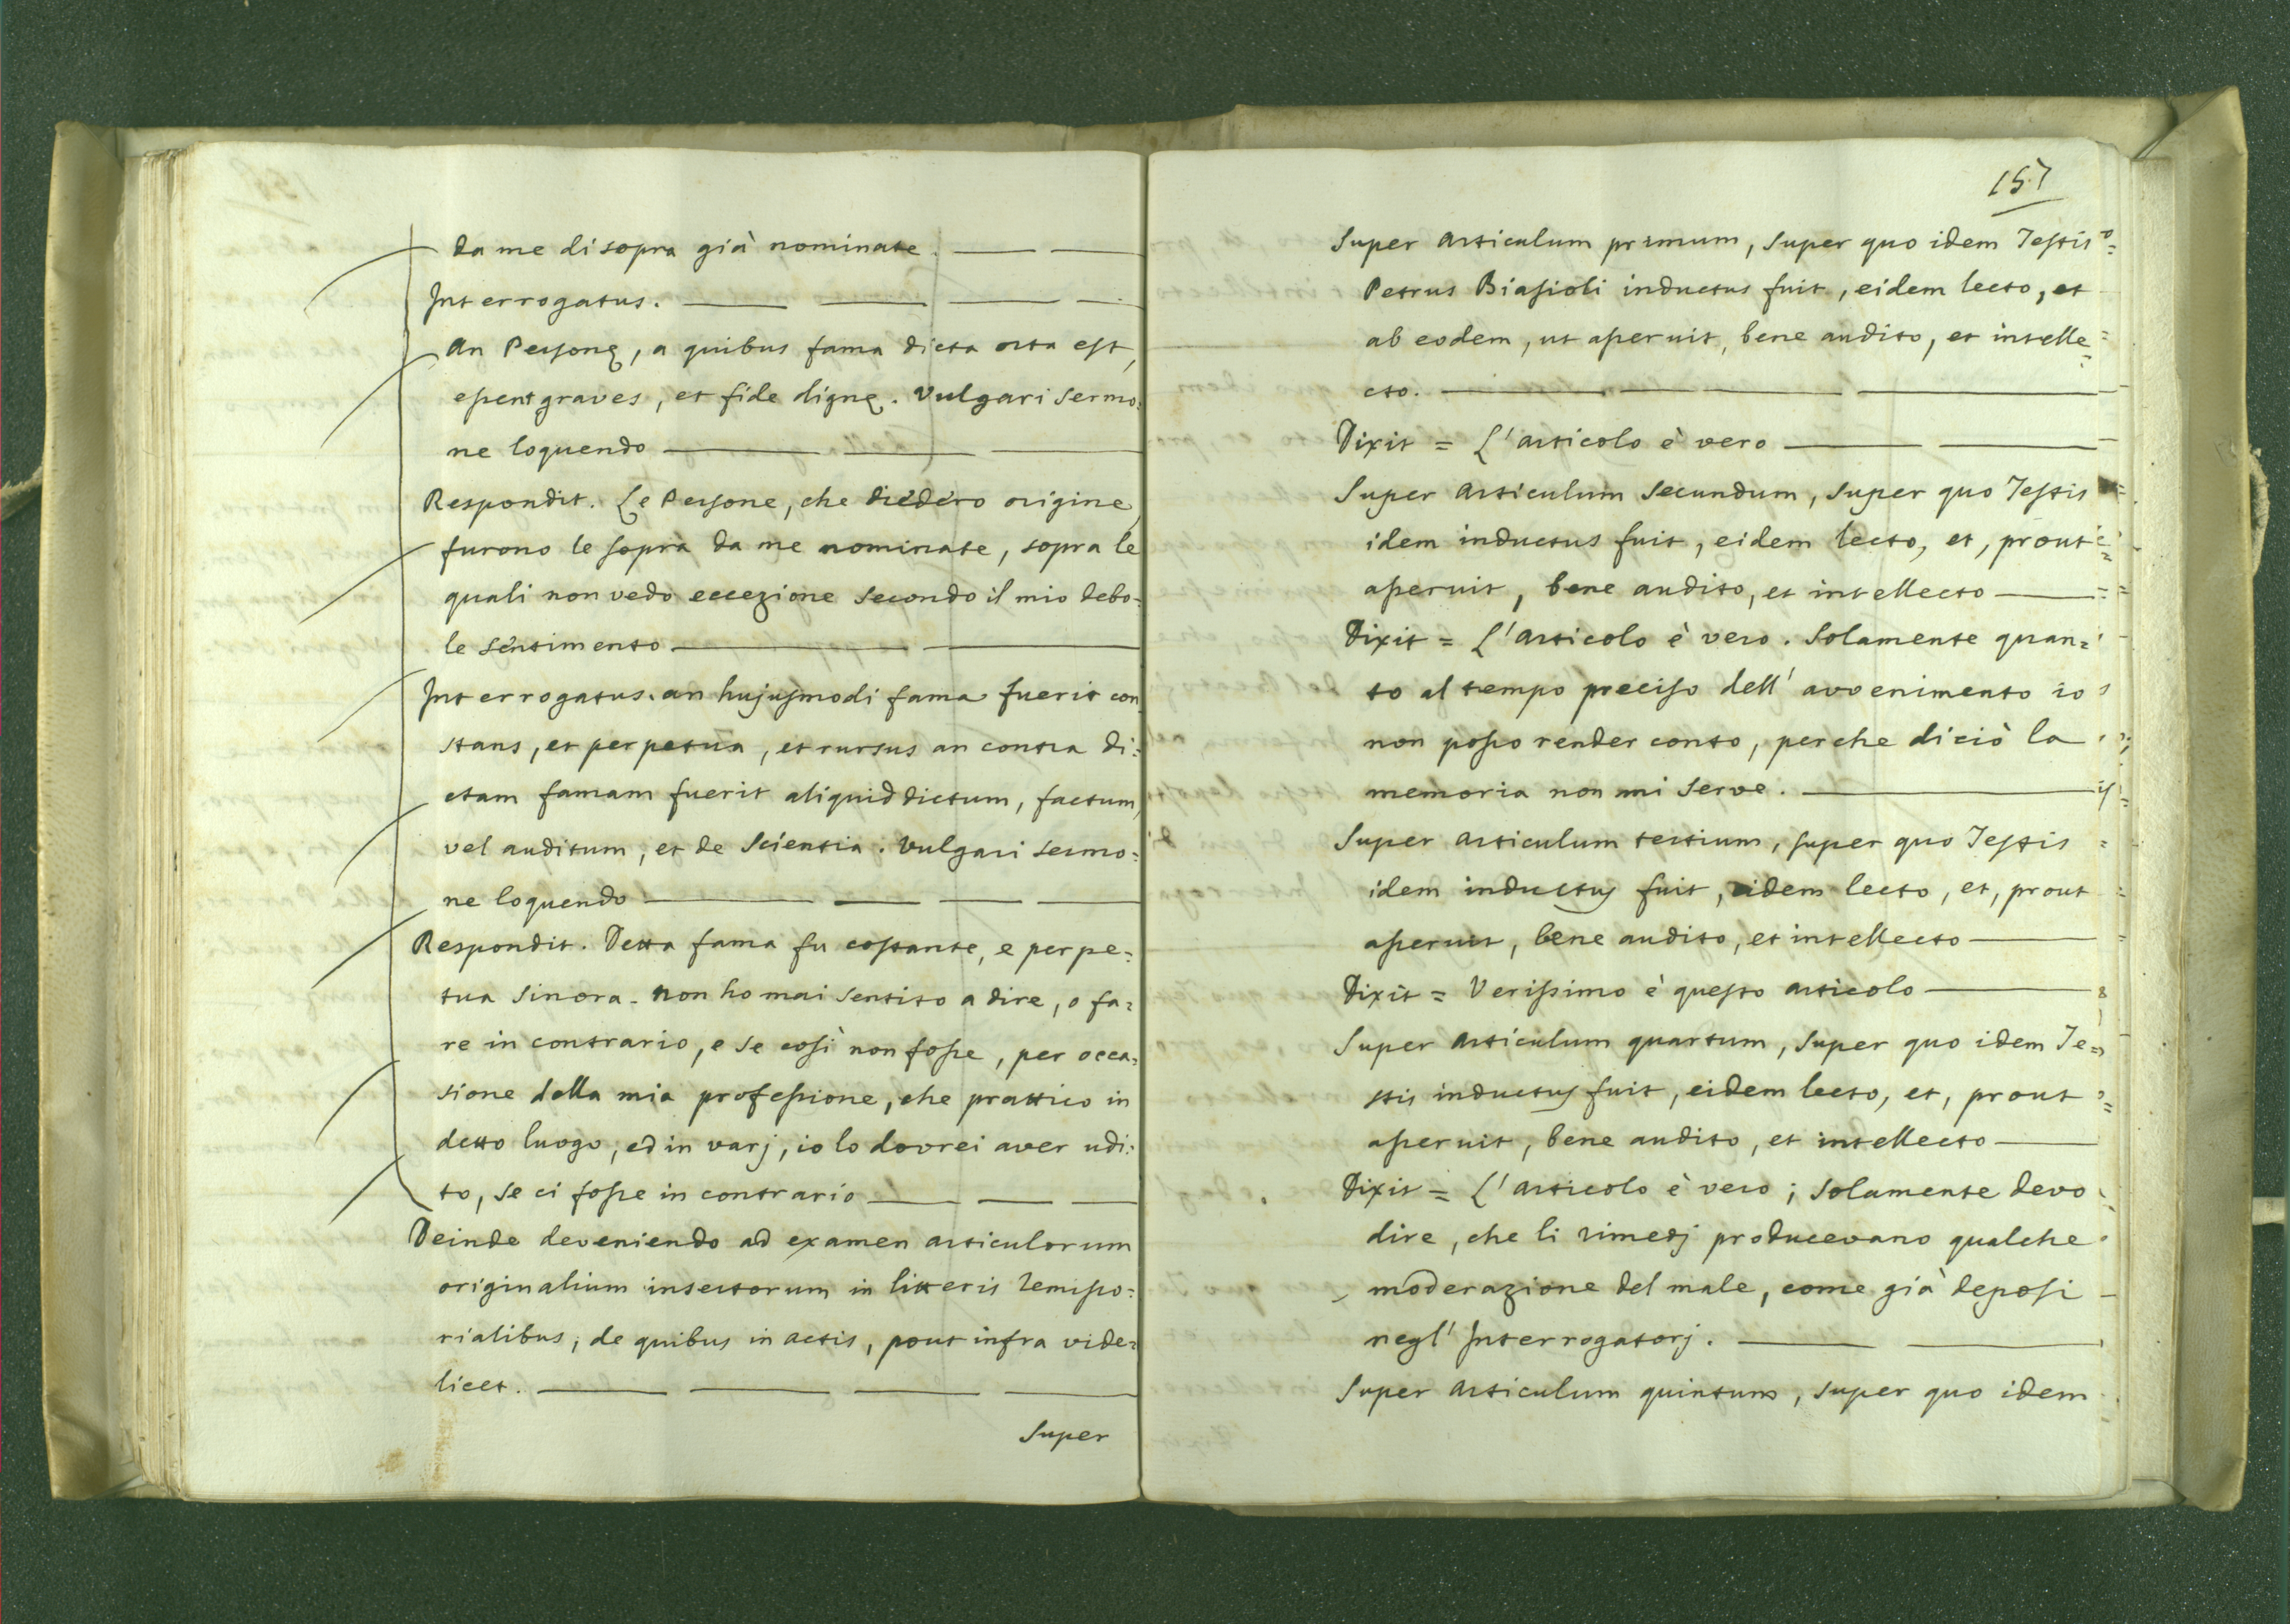 da me di sopra già nominate.
Interrogatus.
An Personę, a quibus fama dicta orta est,
essent graves, et fide dignę. Vulgari Sermo:
ne loquendo
Respondit. Le Persone, che diedero origine,
furono le sopra da me nominate, sopra le
quali non vedo eccezione secondo il mio debo-
le sentimento
Interrogatus. an hujusmodi fama fuerit con
stans, et perpetua, et rursus an contra di:
ctam famam fuerit aliquid dictum, factum,
vel auditum, et de Scientia. Vulgari sermo:
ne loquendo
Respondit. Detta fama fu costante, e perpe:
tua sinora. non ho mai sentito a dire, o fa:
re in contrario, e se così non fosse, per occa:
sione della mia professione, che prattico in
detto luogo, ed in varj, io lo dovrei aver udi:
to, se ci fosse in contrario
Deinde deveniendo ad examen articulorum
originalium insertorum in litteris remisso:
rialibus, de quibus in actis, pout infra vide:
licet.
Super
157
Super articulum primum, super quo idem Testis
Petrus Biasioli inductus fuit, eidem lecto, et
ab eodem, ut asseruit, bene audito, et intelle
cto.
Dixit = L'articolo è vero
Super articulum secundum, super quo Testis
idem inductus fuit, eidem lecto, et, prout
asseruit, bene audito, et intellecto
Dixit = L'articolo è vero. Solamente quan:
to al tempo preciso dell'avvenimento io
non posso render conto, perche di ciò la
memoria non mi serve.
Super articulum tertium, super quo Testis
idem inductus fuit, eidem lecto, et, prout
asseruit, bene audito, et intellecto
Dixit = Verissimo è questo articolo
Super articulum quartum, super quo idem Te=
stis inductus fuit, eidem lecto, et, prout
asseruit, bene audito, et intellecto
Dixit = L'articolo è vero; solamente devo
dire, che li rimedj producevano qualche
moderazione del male, come già deposi
negl'Interrogatorj.
Super articulum quintum, super quo idem